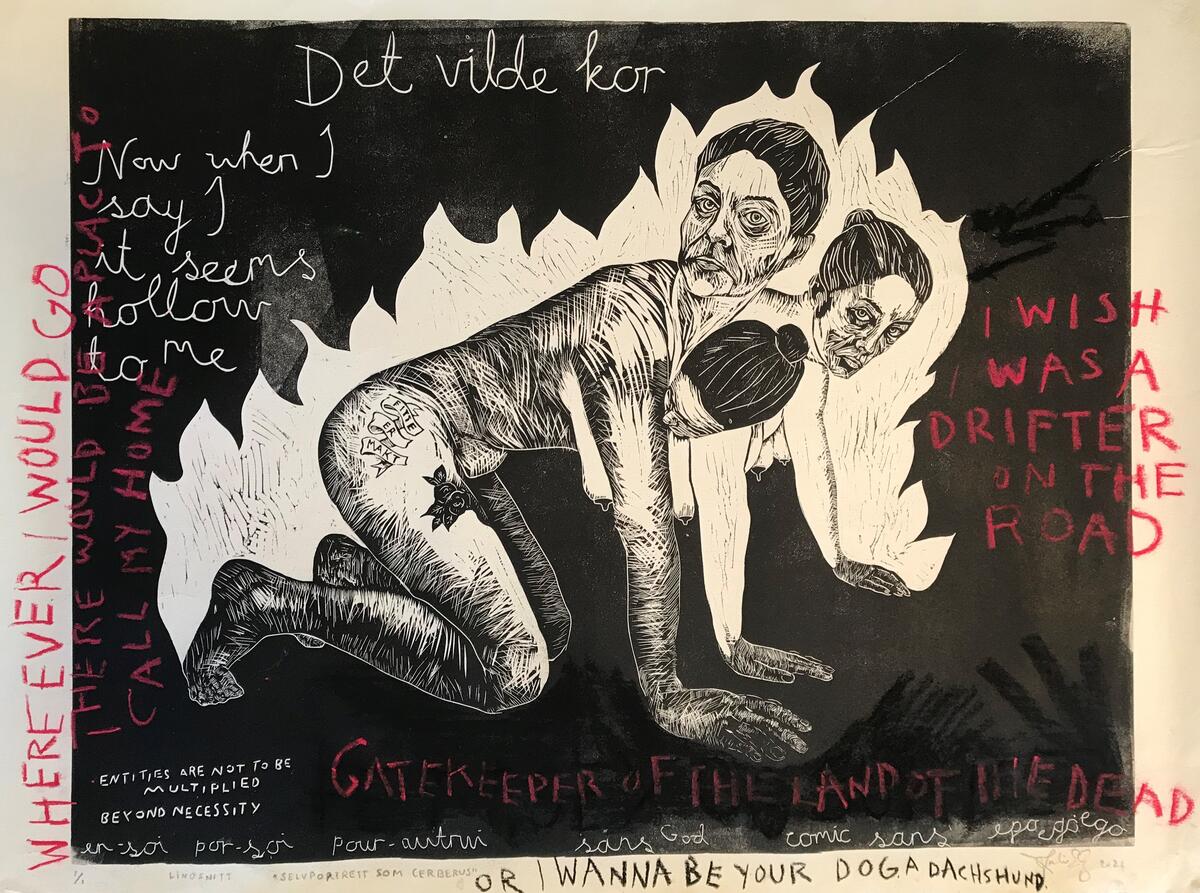 Det vilde kor
Now when I
say I
it seems
hollow
to me
WHEREEVER I WOULD GO
THERE WOULD BE A PLAC TO
CALL MY HOME
I WISH
I WAS A
DRIFTER
ON THE
ROAD
GATEKEEPER OF THE LAND OF THE DEAD
ENTITIES ARE NOT TO BE
MULTIPLIED
BEYOND NECESSITY
en-soi por-soi pour-autrui sans God comic sans
1/1 LINOSNITT "SELVPORTRETT SOM CERBERUS" 2021
OR I WANNA BE YOUR DOG A DACHSHUND